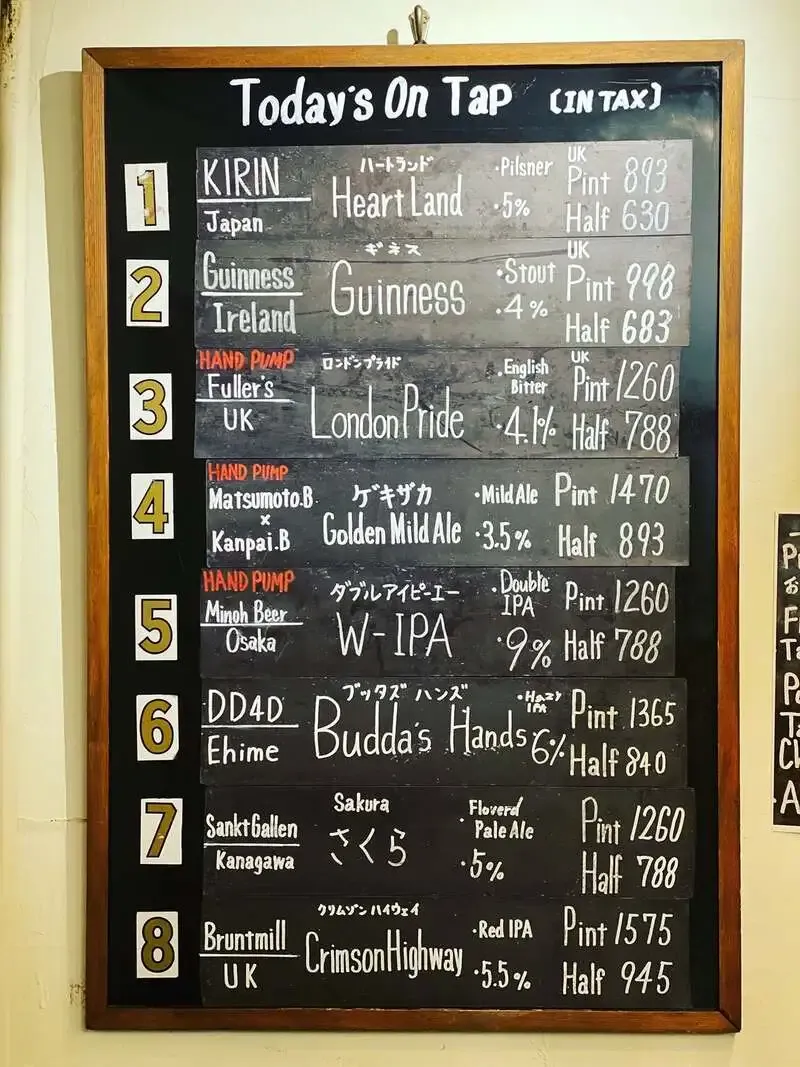 Today's On Tap (IN TAX)
1
KIRIN
Japan
ハートランド
Heart Land
・Pilsner
・5%
UK
Pint 893
Half 630
2
Guinness
Ireland
ギネス
Guinness
・Stout
・4%
UK
Pint 998
Half 683
3
HAND PUMP
Fuller's
UK
ロンドンプライド
London Pride
・English
Bitter
・4.1%
UK
Pint 1260
Half 788
4
HAND PUMP
Matsumoto.B
×
Kanpai.B
ゲキザカ
Golden Mild Ale
・Mild Ale
・3.5%
Pint 1470
Half 893
5
HAND PUMP
Minoh Beer
Osaka
ダブルアイピーエー
W-IPA
・Double
IPA
・9%
Pint 1260
Half 788
6
DD4D
Ehime
ブッダズ ハンズ
Budda's Hands
・Hazy
IPA
6%
Pint 1365
Half 840
7
Sankt Gallen
Kanagawa
Sakura
さくら
・Floverd
Pale Ale
・5%
Pint 1260
Half 788
8
Bruntmill
UK
クリムゾン ハイウェイ
Crimson Highway
・Red IPA
・5.5%
Pint 1575
Half 945